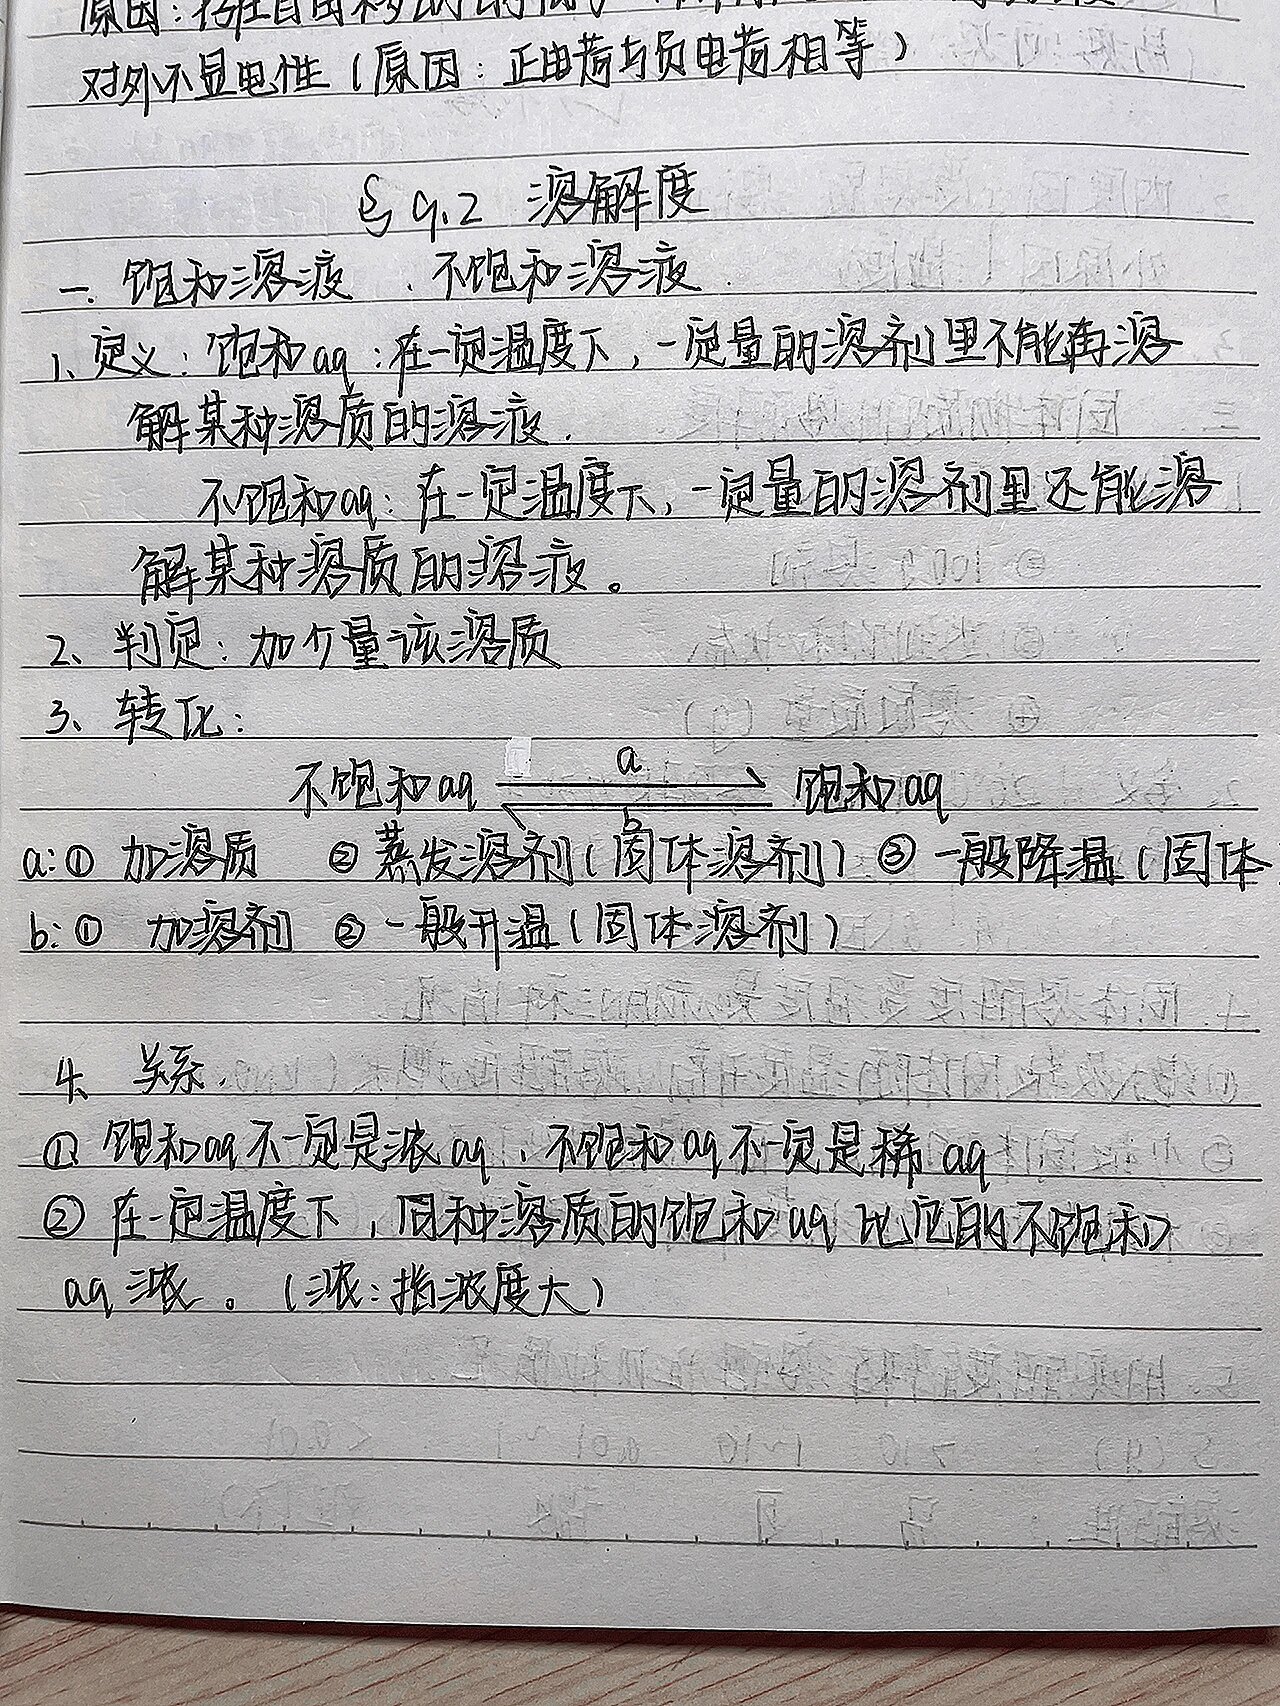 原因：存在自由移动的
对外不显电性（原因：正电荷与负电荷相等）
§ 9.2 溶解度
一. 饱和溶液 、不饱和溶液
1、定义：饱和aq：在一定温度下，一定量的溶剂里不能再溶
解某种溶质的溶液.
不饱和aq：在一定温度下，一定量的溶剂里还能溶
解某种溶质的溶液。
2、判定：加少量该溶质
3、转化：
a
不饱和aq ⇌ 饱和aq
b
a:① 加溶质 ② 蒸发溶剂（固体溶剂）③ 一般降温（固体
b:① 加溶剂 ② 一般升温（固体溶剂）
4、关系.
① 饱和aq不一定是浓aq、不饱和aq不一定是稀aq
② 在一定温度下，同种溶质的饱和aq比它的不饱和
aq浓。（浓：指浓度大）